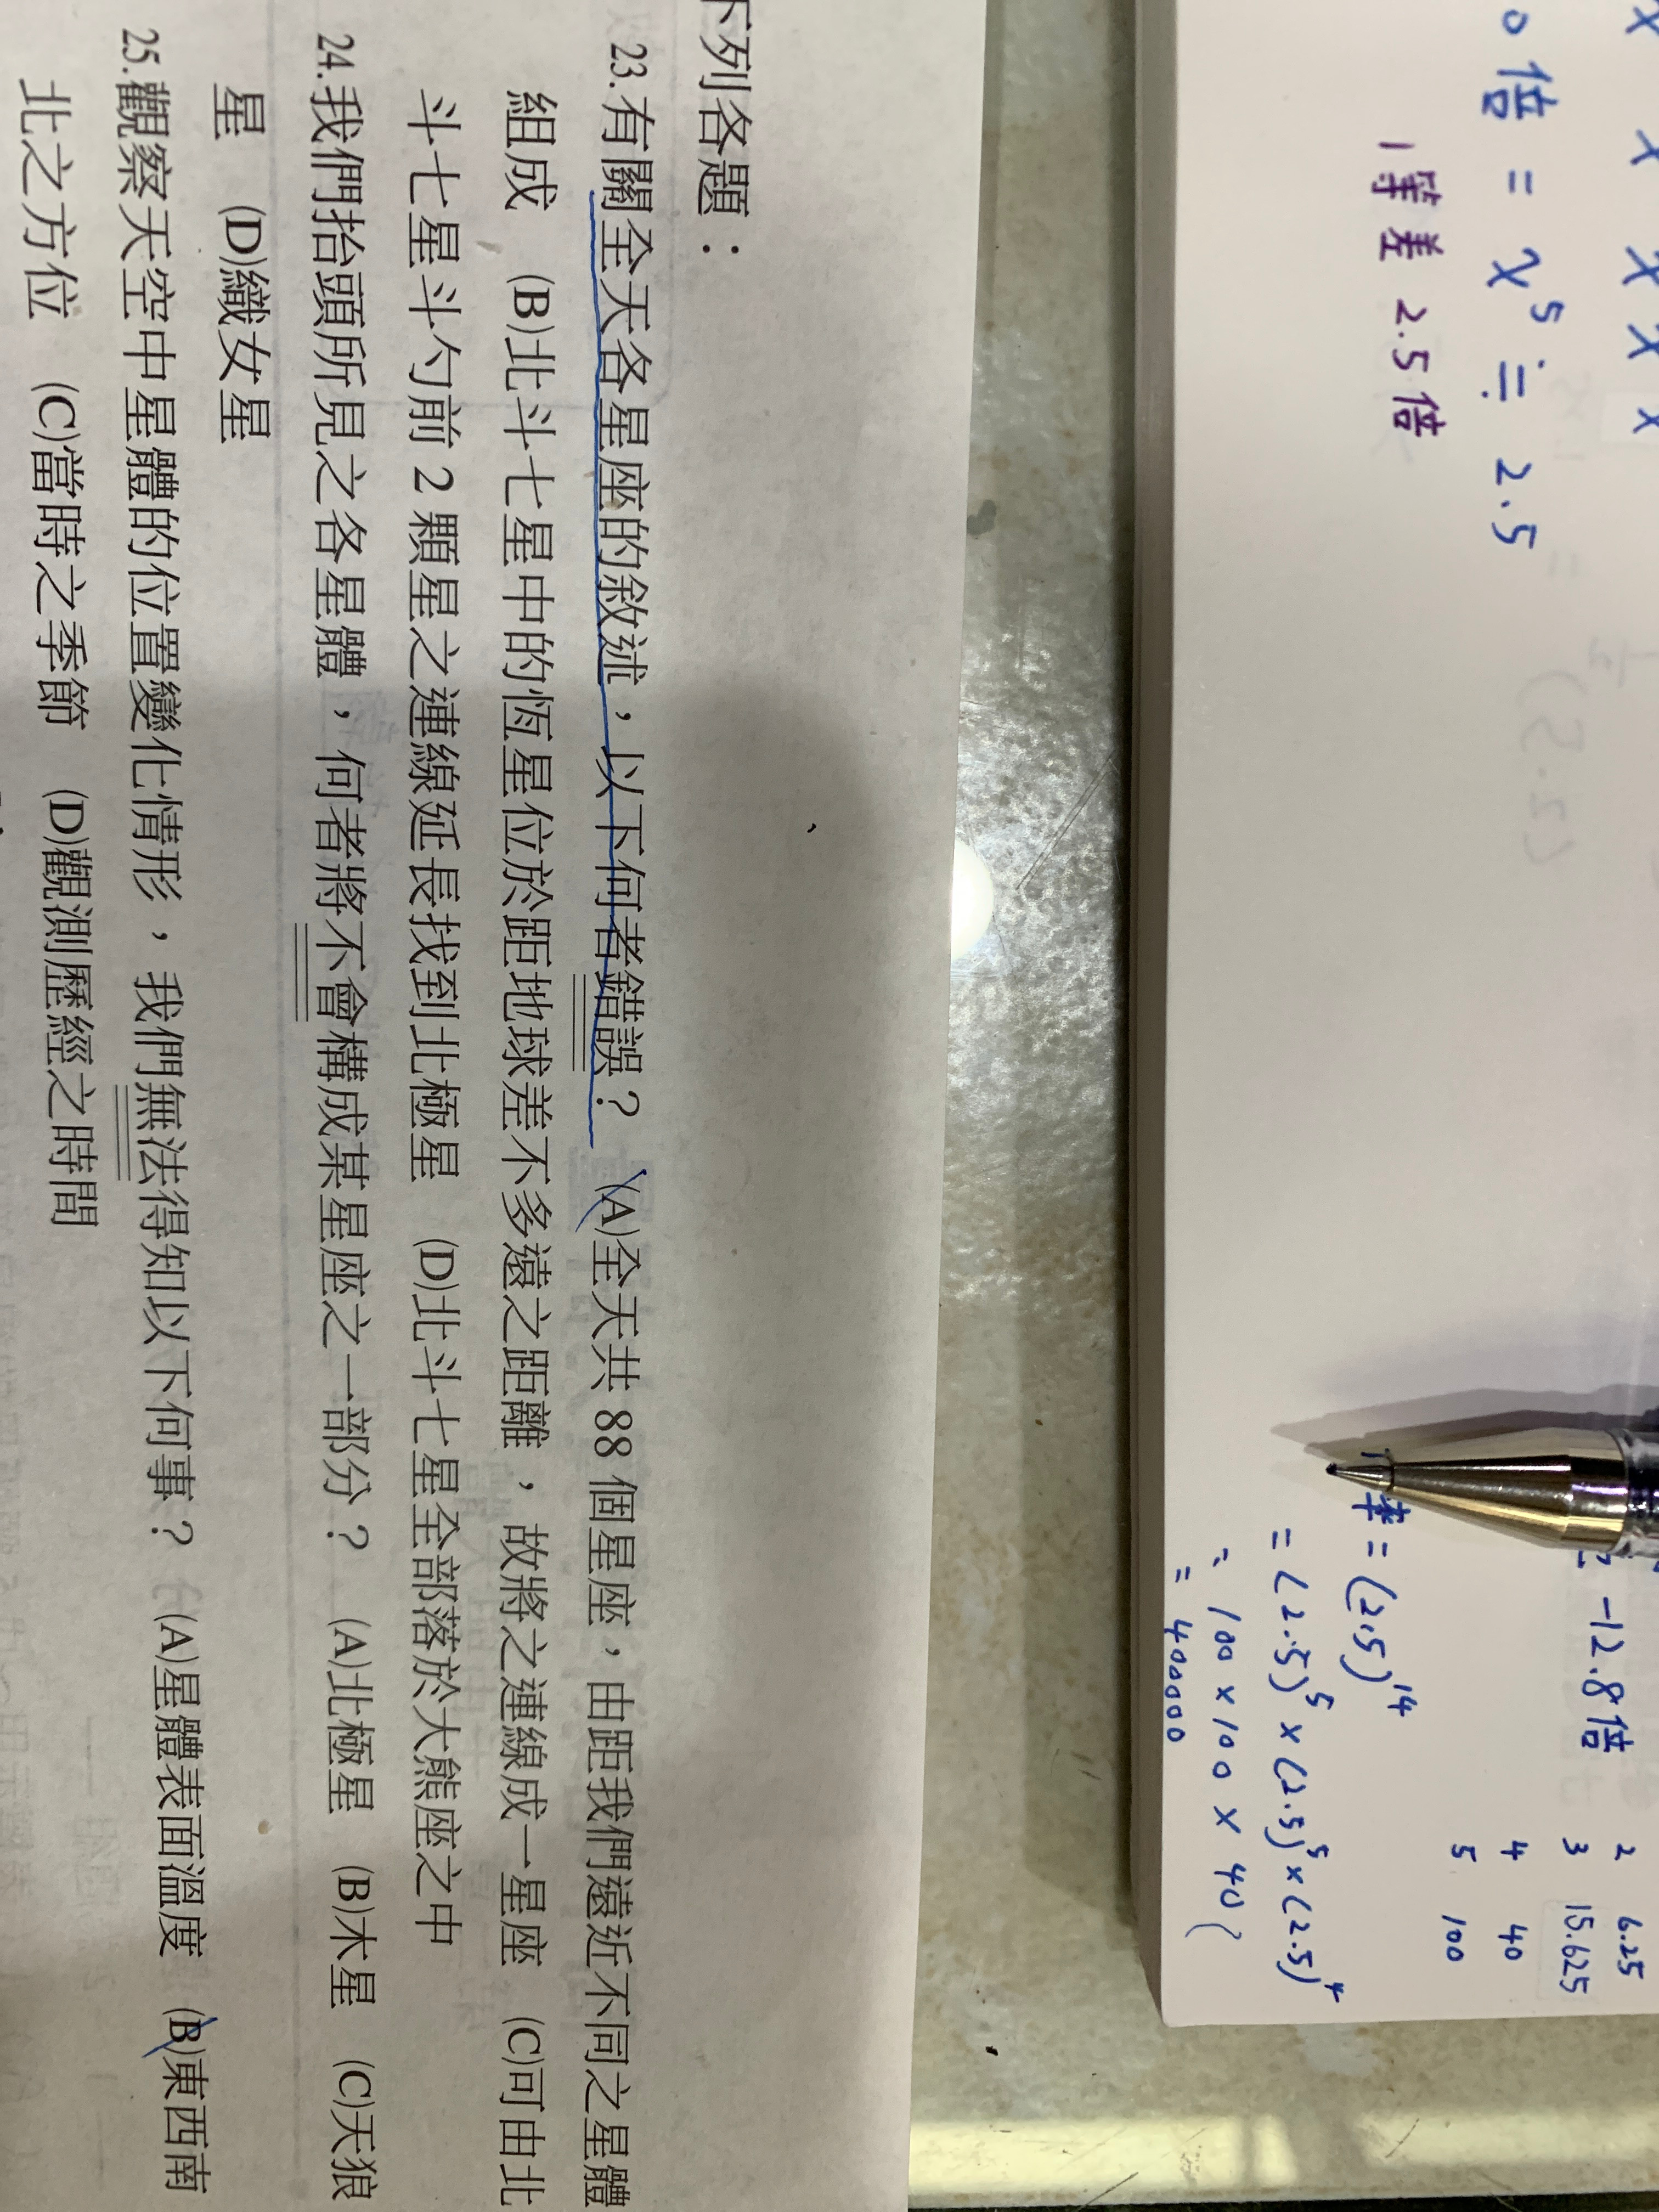 0倍 = x⁵ ≒ 2.5
1等差 2.5倍
-12.8倍
= (2.5)¹⁴
= (2.5)⁵ × (2.5)⁵ × (2.5)⁴
≒ 100 × 100 × 40
= 400000
2 6.25
3 15.625
4 40
5 100
下列各題：
23.有關全天各星座的敘述，以下何者錯誤？ (A)全天共 88 個星座，由距我們遠近不同之星體
組成 (B)北斗七星中的恆星位於距地球差不多遠之距離，故將之連線成一星座 (C)可由北
斗七星斗勺前 2 顆星之連線延長找到北極星 (D)北斗七星全部落於大熊座之中
24.我們抬頭所見之各星體，何者將不會構成某星座之一部分？ (A)北極星 (B)木星 (C)天狼
星 (D)織女星
25.觀察天空中星體的位置變化情形，我們無法得知以下何事？ (A)星體表面溫度 (B)東西南
北之方位 (C)當時之季節 (D)觀測歷經之時間